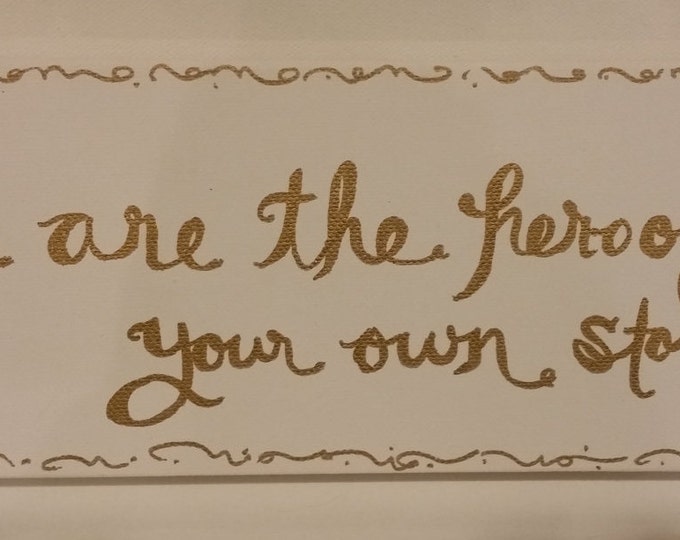 are the hero of
your own sto